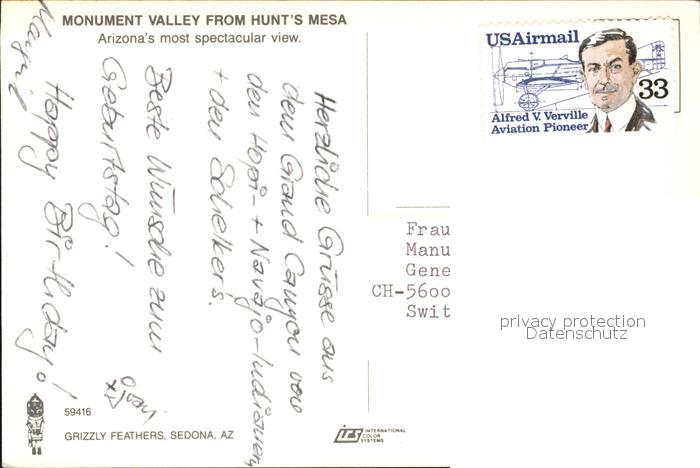 MONUMENT VALLEY FROM HUNT'S MESA
Arizona's most spectacular view.
USAirmail
33
Alfred V. Verville
Aviation Pioneer
Herzliche Grüsse aus
dem Grand Canyon von
den Hopi- + Navajo-Indianern
+ den Schelkers.
Beste Wünsche zum
Geburtstag!
Happy Birthday!
Frau
Manu
Gene
CH-5600
Swit
privacy protection
Datenschutz
59416
GRIZZLY FEATHERS, SEDONA, AZ
irs INTERNATIONAL
COLOR
SYSTEMS